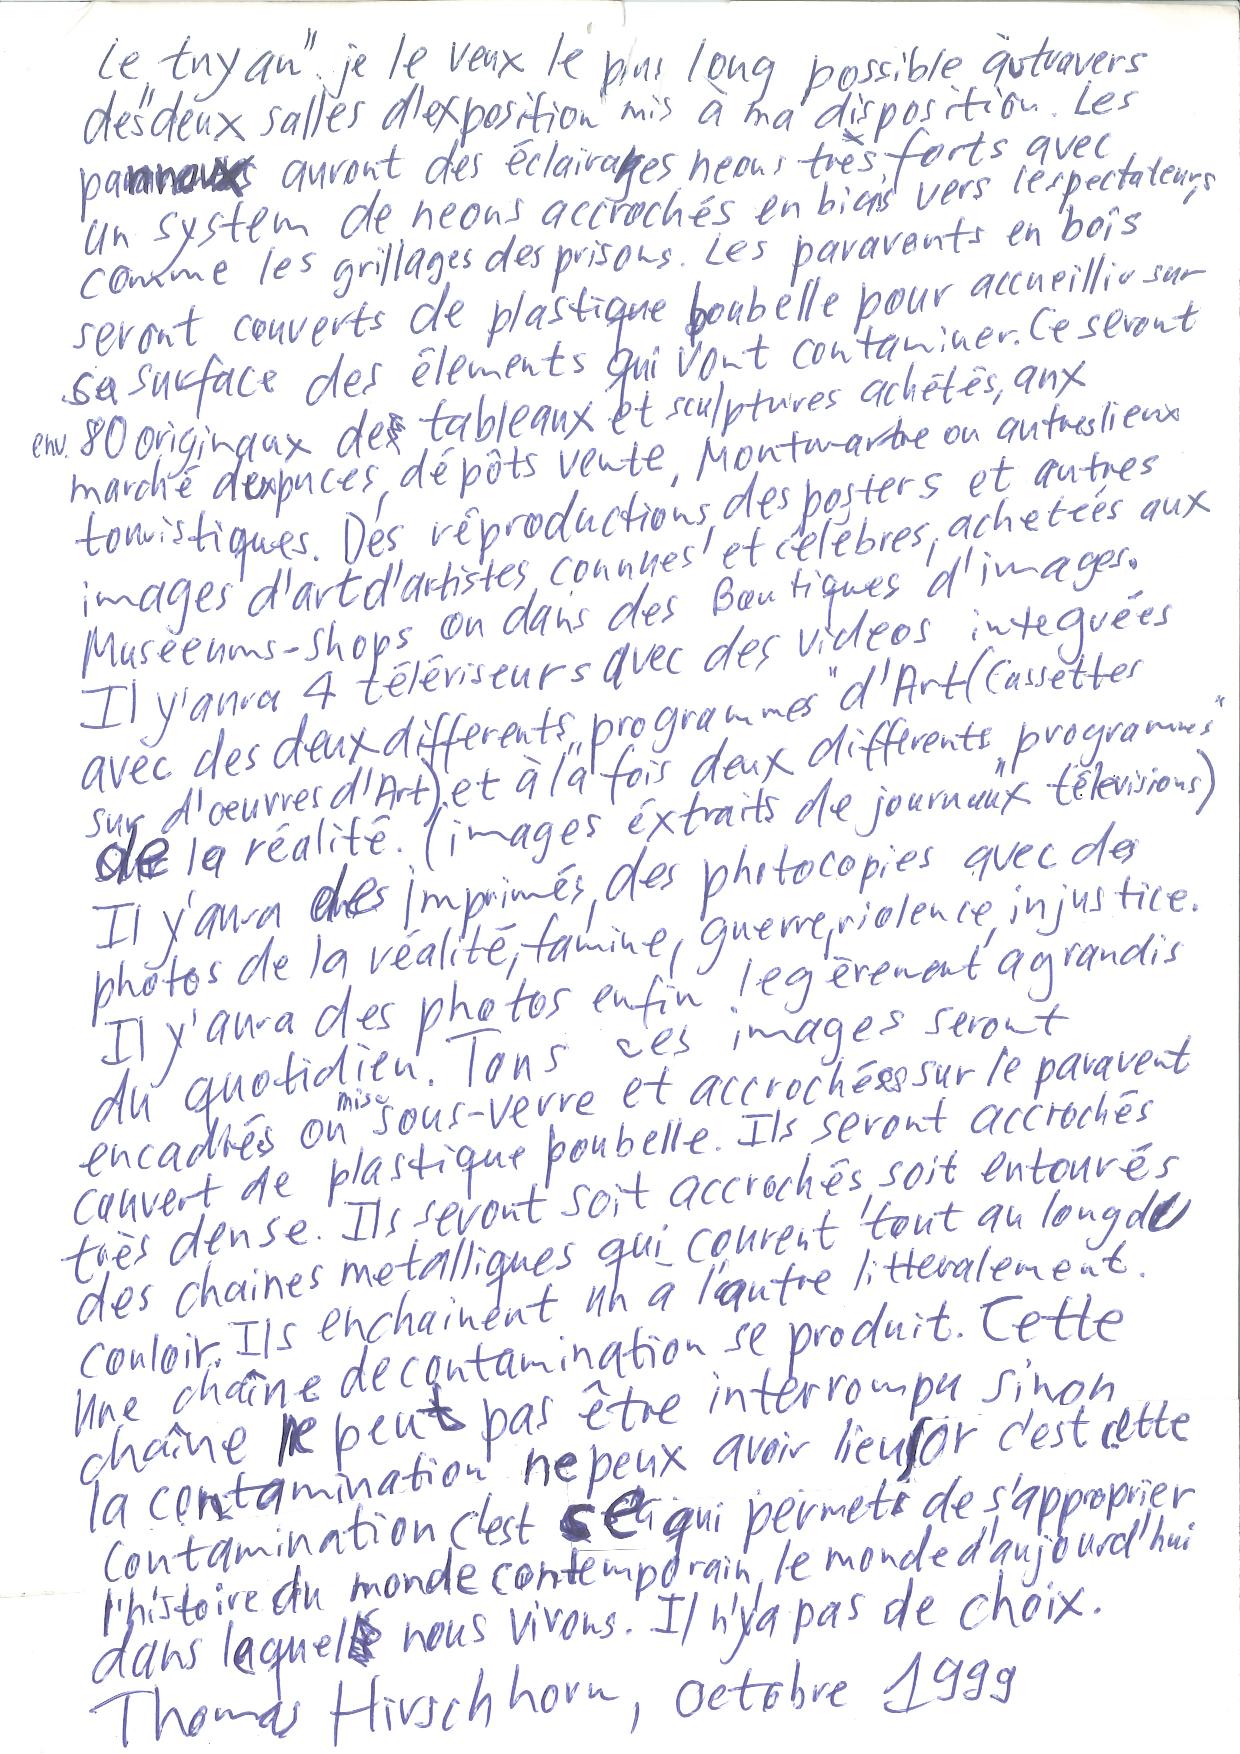 Le "tuyau" je le veux le plus long possible àutravers
des deux salles d'exposition mis à ma disposition. Les
pannaux auront des éclairages neons très forts avec
un system de neons accrochés en biais vers lespectateurs
comme les grillages des prisons. Les paravants en bois
seront couverts de plastique poubelle pour accueillir sur
sa surface des élements qui vont contaminer. Ce seront
env. 80 originaux de tableaux et sculptures achétés, aux
marché auxpuces, dépôts vente, Montmartre ou autreslieux
touristiques. Des réproductions, des posters et autres
images d'art d'artistes connues et célébres, achetées aux
Muséeums-shops ou dans des Boutiques d'images.
Il y'aura 4 télériseurs avec des videos integrées
avec des deux differents "programmes" d'Art (Cassettes
sur d'oeuvres d'Art), et à la fois deux différents "programmes"
de la réalité. (images éxtraits de journaux télévisions)
Il y'aura des imprimés, des photocopies avec des
photos de la réalité, famine, guerre, violence, injustice.
Il y'aura des photos enfin legèrement agrandis
du quotidien. Tous ces images seront
encadrés ou mise sous-verre et accrochées sur le paravent
couvert de plastique poubelle. Ils seront accrochés
très dense. Ils seront soit accrochés soit entourés
des chaines metalliques qui courent tout au long du
couloir. Ils enchainent un à l'autre litteralement.
Une chaîne de contamination se produit. Cette
chaîne ne peut pas être interrompu sinon
la contamination ne peux avoir lieu, or c'est cette
contamination c'est ce qui permets de s'approprier
l'histoire du monde contemporain, le monde d'aujourd'hui
dans lequel nous vivons. Il n'ya pas de choix.
Thomas Hirschhorn, octobre 1999